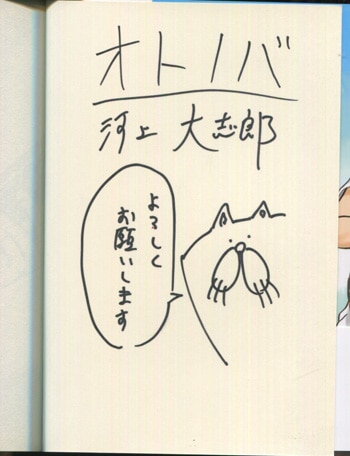 オトノバ
河上 大志郎
よろしく
お願いします